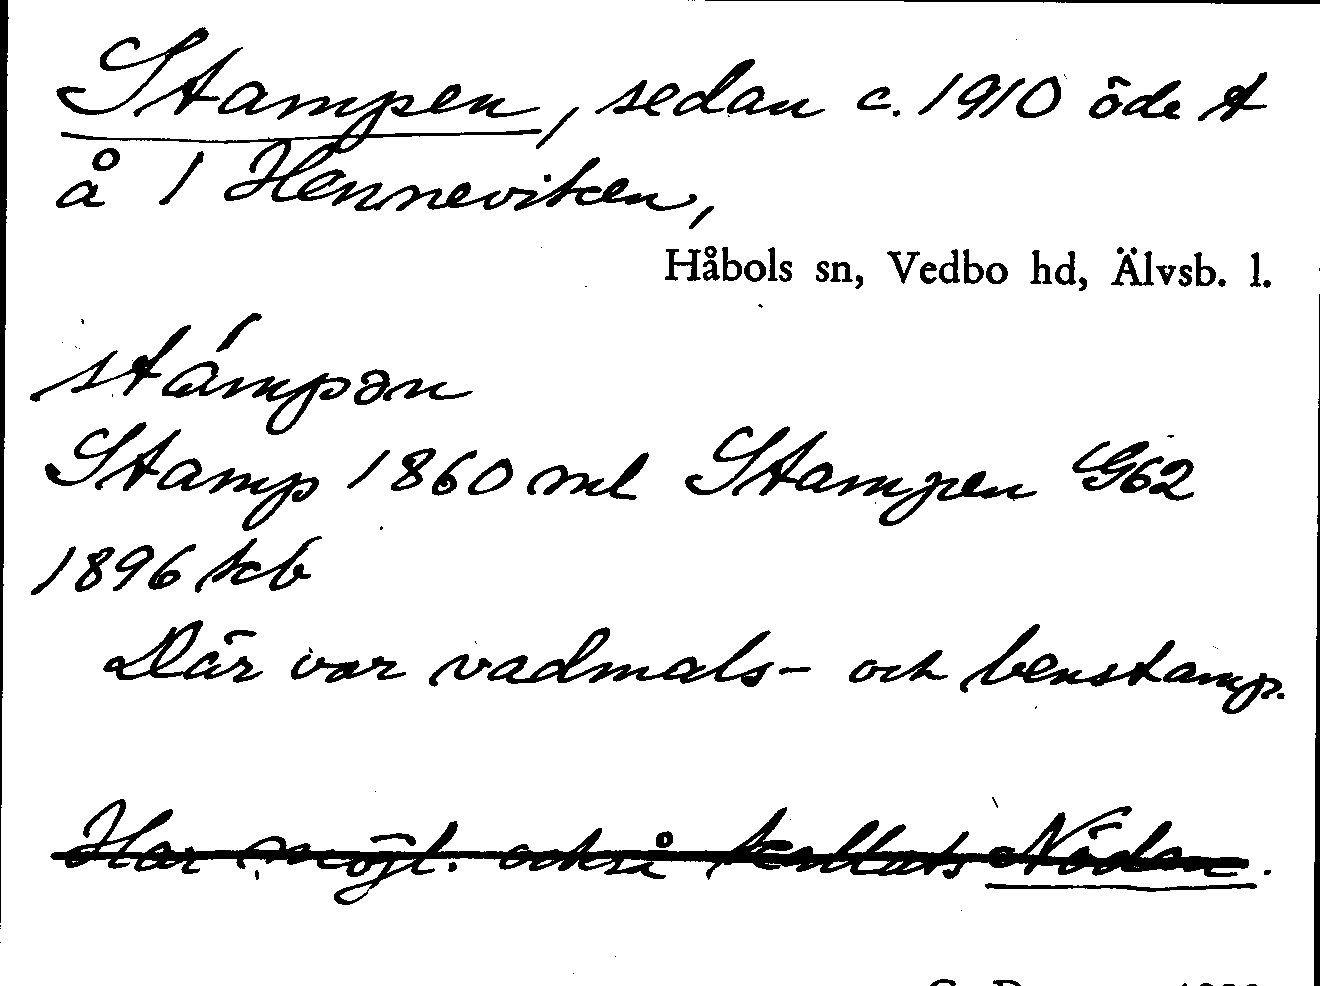 Stampen, sedan c. 1910 öde t
å 1 Henneviken,
Håbols sn, Vedbo hd, Älvsb. l.
stámpən
Stamp 1860 ml Stampen G62
1896 kb
Där var vadmals- och benstamp.
Har möjl. också kallats Nödan.